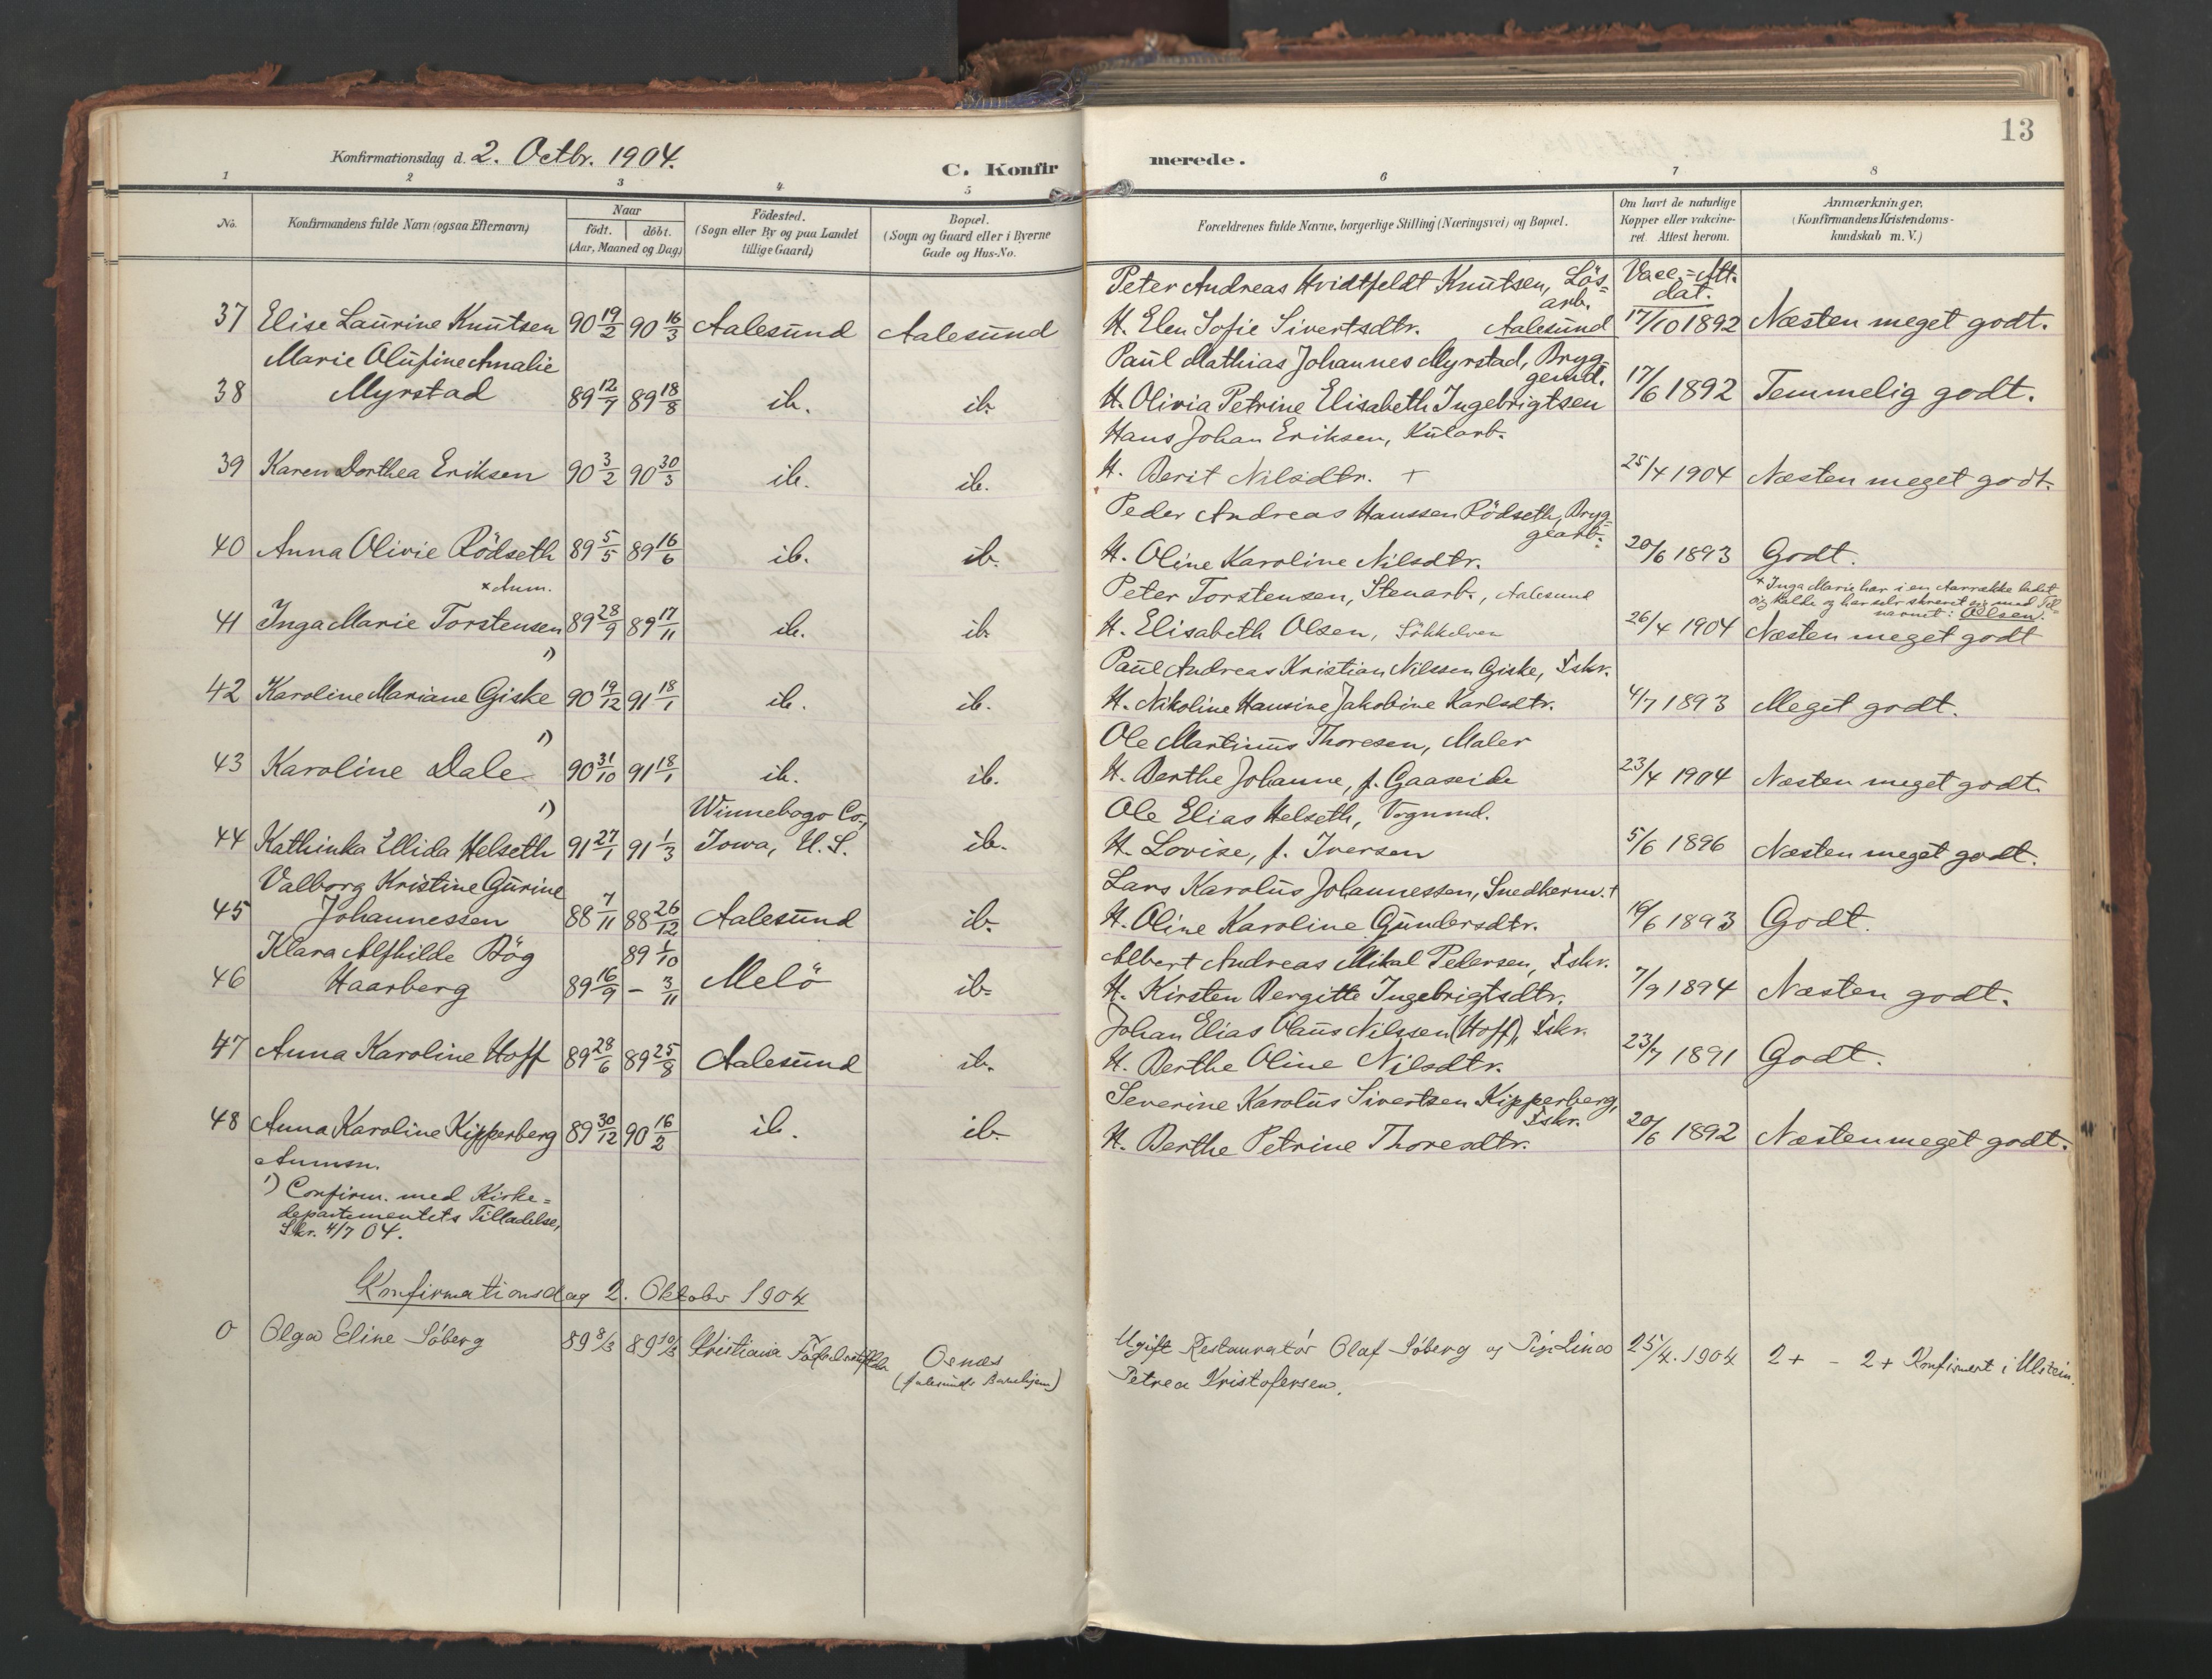 13
Konfirmationsdag d. 2. Octbr. 1904.
C. Konfir merede.
1 2 3 4 5 6 7 8
No. Konfirmandens fulde Navn (ogsaa Efternavn) Naar födt. döbt. (Aar, Maaned og Dag) Födested. (Sogn eller By og paa Landet tillige Gaard) Bopæl. (Sogn og Gaard eller i Byerne Gade og Hus-No. Forældrenes fulde Navne, borgerlige Stilling (Næringsvei) og Bopæl. Om havt de naturlige Kopper eller vakcineret. Attest herom. Anmærkninger. (Konfirmandens Kristendomskundskab m. V.)
Peter Andreas Hvidtfeldt Knutsen, Lös= arb. Vacc.=Att. dat.
37 Elise Laurine Knutsen 90 19/2 90 16/3 Aalesund Aalesund H. Elen Sofie Sivertsdtr. Aalesund 17/10 1892 Næsten meget godt.
Marie Olufine Amalie Paul Mathias Johannes Myrstad, Bryg= gemd.
38 Myrstad 89 12/7 89 18/8 ib. ib. H. Olivia Petrine Elisabeth Ingebrigtsen 17/6 1892 Temmelig godt.
Hans Johan Eriksen, Kularb.
39 Karen Dorthea Eriksen 90 3/2 90 30/3 ib. ib. H. Berit Nilsdtr. + 25/4 1904 Næsten meget godt.
Peder Andreas Hanssen Rödseth, Bryg= gearb.
40 Anna Olivie Rödseth 89 5/5 89 16/6 ib. ib. H. Oline Karoline Nilsdtr. 20/6 1893 Godt.
x Anm. Peter Torstensen, Stenarb., Aalesund x Inga Marie har i en Aarrække ladet sig kalde og har selv skrevet sig med Til= navnet: Oelsen.
41 Inga Marie Torstensen 89 28/9 89 17/11 ib. ib. H. Elisabeth Olsen, Sökkelven 26/4 1904 Næsten meget godt
1) Paul Andreas Kristian Nilssen Giske, Fskr.
42 Karoline Mariane Giske 90 19/12 91 18/1 ib. ib. H. Nikoline Hansine Jakobine Karlsdtr. 4/7 1893 Meget godt.
1) Ole Martinus Thoresen, Maler
43 Karoline Dale 90 31/10 91 18/1 ib. ib. H. Berthe Johanne, f. Gaaseide 23/4 1904 Næsten meget godt.
1) Winnebago Co., Ole Elias Helseth, Vognmd.
44 Kathinka Ellida Helseth 91 27/1 91 1/3 Iowa, U.S. ib. H. Lovise, f. Iversen 5/6 1896 Næsten meget godt.
Valborg Kristine Gurine Lars Karolus Johannessen, Snedkerm. +
45 Johannessen 88 7/11 88 26/12 Aalesund ib. H. Oline Karoline Gundersdtr. 19/6 1893 Godt.
Klara Alfhilde Bög 89 1/10 Albert Andreas Mikal Pedersen, Fskr.
46 Haarberg 89 16/9 – 3/11 Melö ib. H. Kirsten Bergitte Ingebrigtsdtr. 7/9 1894 Næsten godt.
Johan Elias Olaus Nilssen (Hoff), Fskr.
47 Anna Karoline Hoff 89 28/6 89 25/8 Aalesund ib. H. Berthe Oline Nilsdtr. 23/7 1891 Godt.
Severine Karolus Sivertsen Kipperberg, Fskr.
48 Anna Karoline Kipperberg 89 30/12 90 16/2 ib. ib. H. Berthe Petrine Thoresdtr. 20/6 1892 Næsten meget godt.
Anmm.
1) Confirm. med Kirke=
departementets Tilladelse,
Skr. 4/7 04.
Konfirmationsdag 2. Oktober 1904
0 Olga Eline Söberg 89 8/3 89 10/3 Kristiania Oenes Ugift Restauratör Olaf Söberg og Pige Lina 25/4. 1904 2+ – 2+ Konfirmert i Ulstein.
(Aalesunds Barnehjem) Petrea Kristofersen.